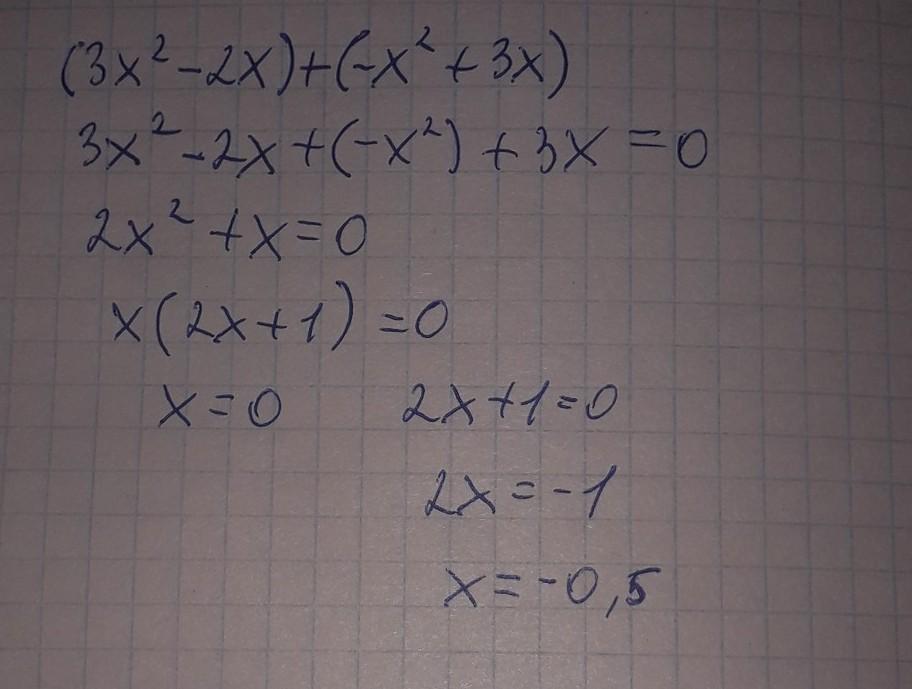 (3x² - 2x) + (-x² + 3x)
3x² - 2x + (-x²) + 3x = 0
2x² + x = 0
x(2x + 1) = 0
x = 0    2x + 1 = 0
2x = -1
x = -0,5